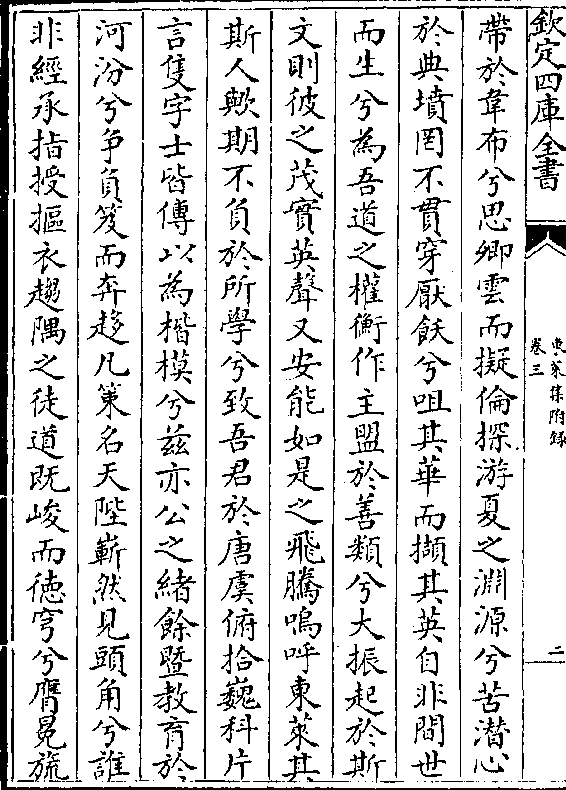 欽定四庫全書
東萊集附録
卷三
二
滯於韋布兮思卿雲而擬倫探游夏之淵源兮苦潜心
於典墳罔不貫穿厭飫兮咀其華而擷其英自非間世
而生兮為吾道之權衡作主盟於善類兮大振起於斯
文則彼之茂實英聲又安能如是之飛騰嗚呼東萊其
斯人歟期不負於所學兮致吾君於唐虞俯拾巍科片
言隻字士皆傳以為楷模兮兹亦公之緒餘暨教育於
河汾兮争負笈而奔趍凡策名天陛嶄然見頭角兮誰
非經承指授摳衣趨隅之徒道既峻而徳穹兮膺冕旒